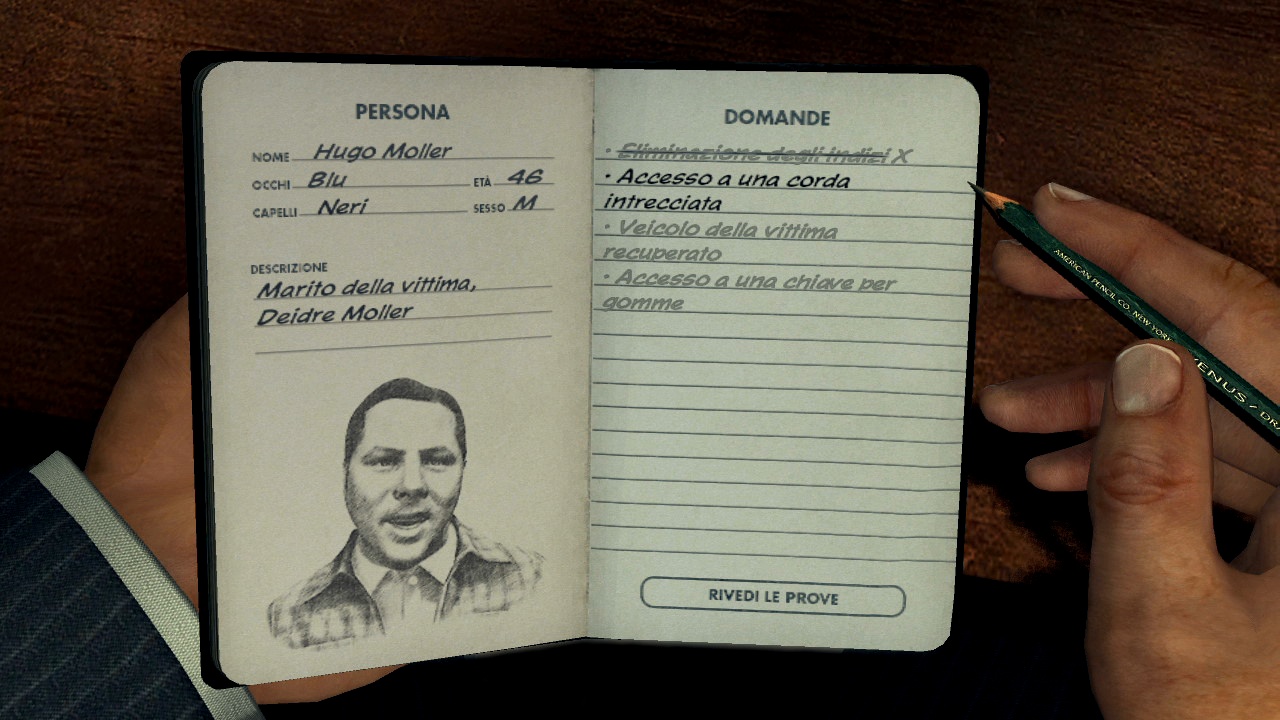 PERSONA
NOME Hugo Moller
OCCHI Blu ETÀ 46
CAPELLI Neri SESSO M
DESCRIZIONE
Marito della vittima,
Deidre Moller
DOMANDE
• Eliminazione degli indizi X
• Accesso a una corda
intrecciata
• Veicolo della vittima
recuperato
• Accesso a una chiave per
gomme
RIVEDI LE PROVE
AMERICAN PENCIL CO. NEW YORK
VENUS / DRA